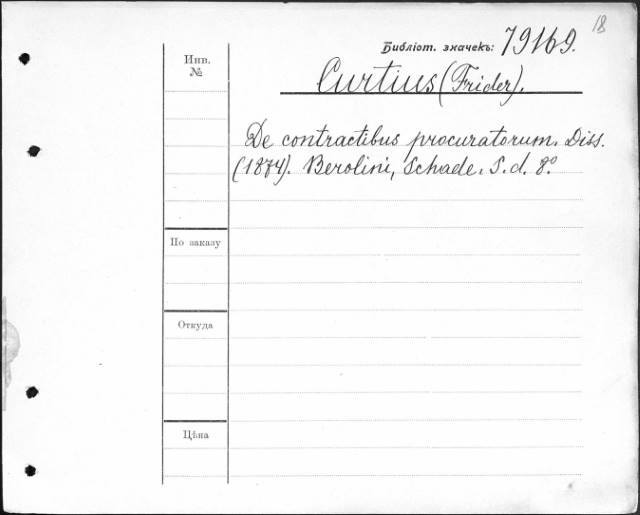 18
Библіот. значекъ: 79169.
Инв.
№
Curtius (Frider).
De contractibus procuratorum. Diss.
(1874). Berolini, Schade. S. d. 8º
По заказу
Откуда
Цѣна